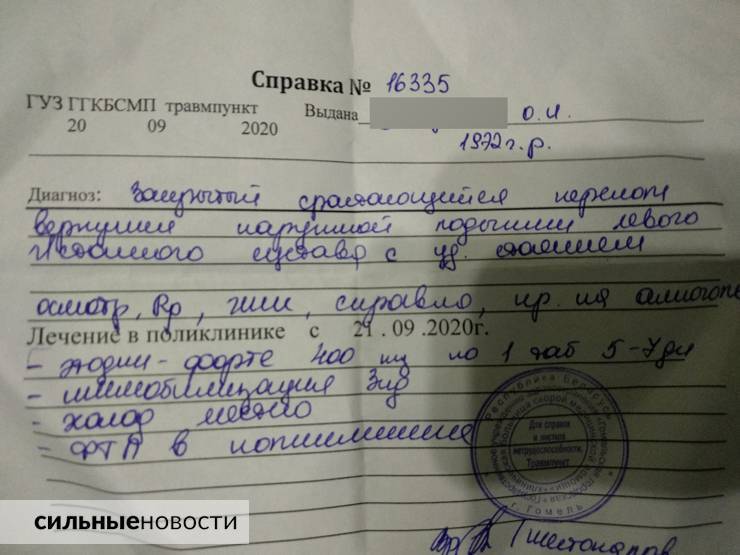 Справка № 16335
ГУЗ ГГКБСМП травмпункт Выдана о.и.
20 09 2020 1972 г.р.
Диагноз: Закрытый срастающийся перелом
верхушки наружной лодыжки левого
голеностопного сустава с уд. стоянием
осмотр, Rр, гип, справка,
Лечение в поликлинике с 21.09.2020г.
- этодин-форте 400 мг по 1 таб 5-7 дн
- иммобилизация 3 нд
- холод местно
- ФТЛ в поликлинике
Республика Беларусь
Для справок
и листков
нетрудоспособности
Травмпункт
г. Гомель
СИЛЬНЫЕНОВОСТИ